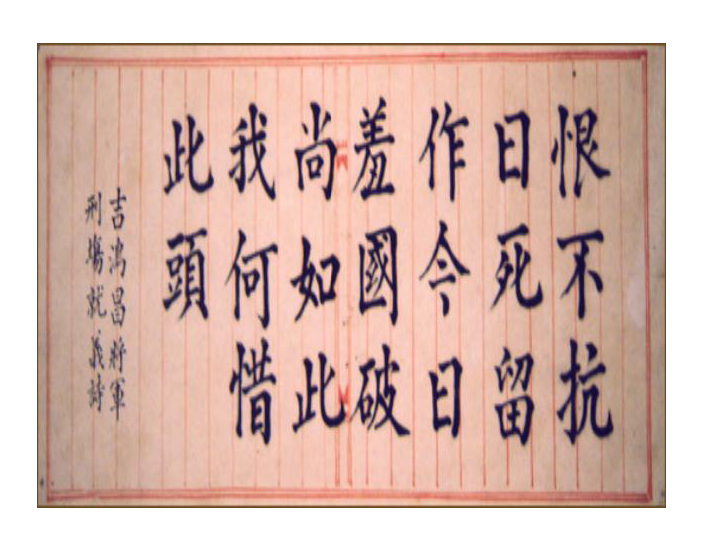 恨不抗
日死留
作今日
羞國破
尚如此
我何惜
此頭
吉鴻昌將軍
刑場就義詩